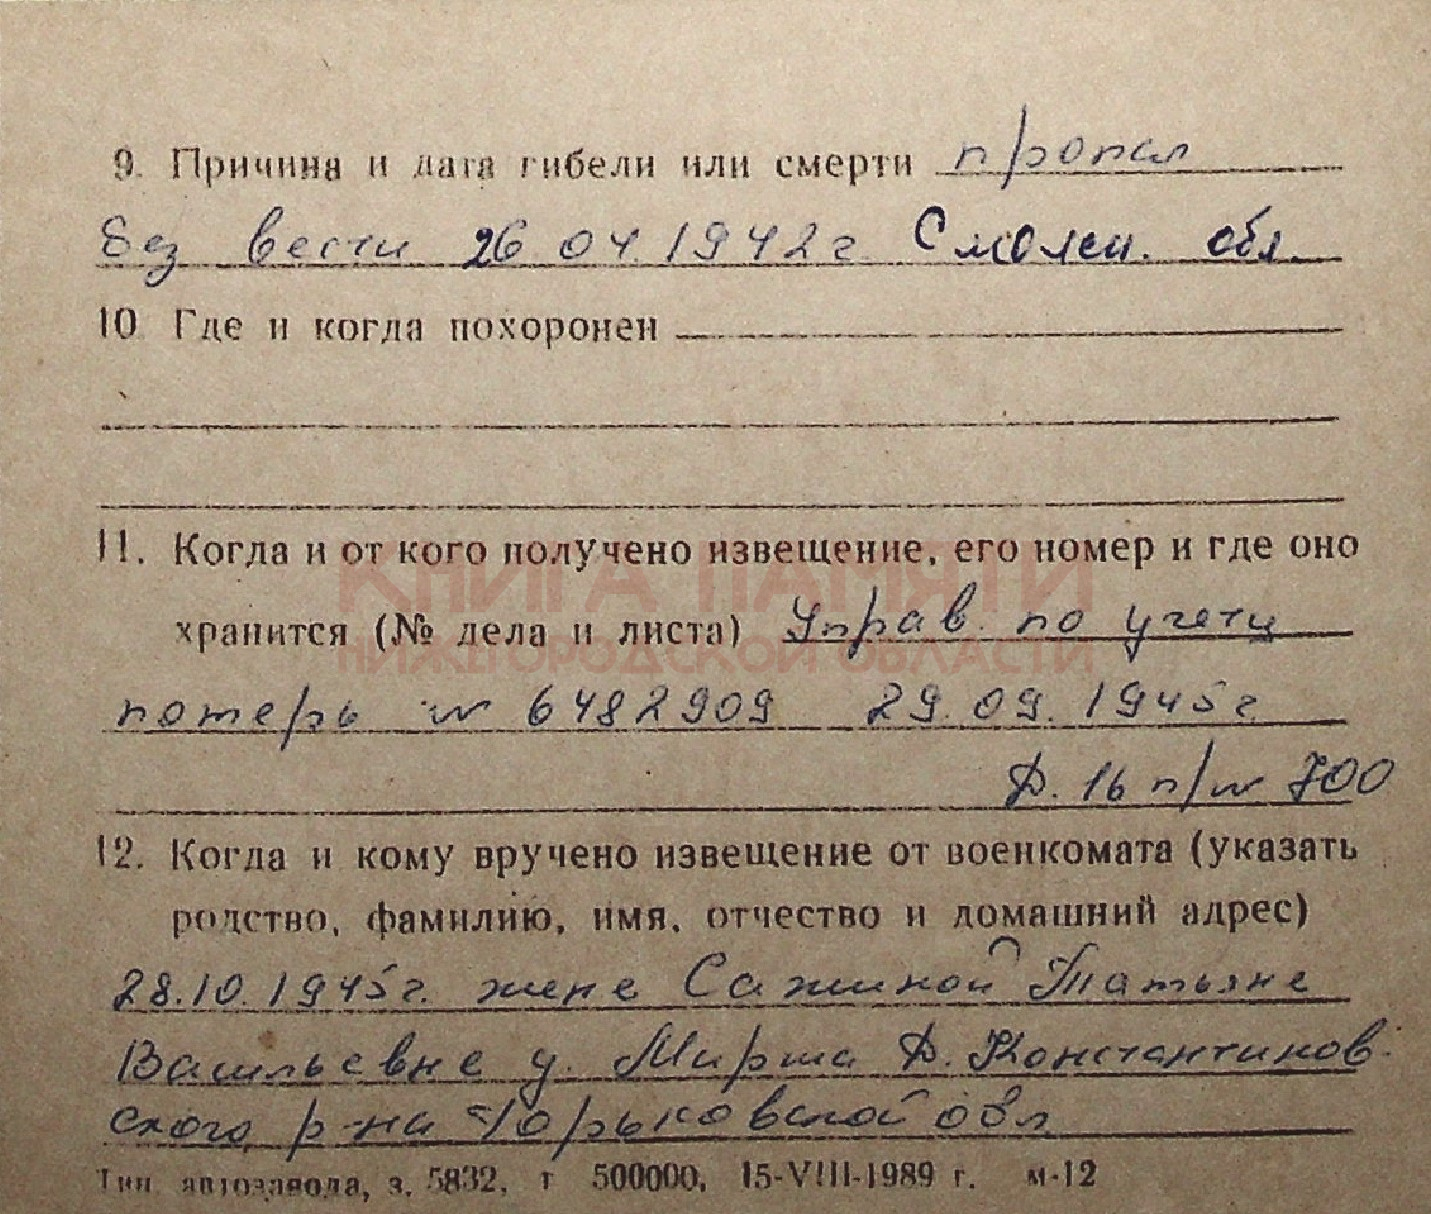 9. Причина и дата гибели или смерти пропал
без вести 26 04. 1942 г. Смолен. обл.
10 Где и когда похоронен
11. Когда и от кого получено извещение, его номер и где оно
КНИГА ПАМЯТИ
хранится (№ дела и листа) Управ. по учету
НИЖЕГОРОДСКОЙ ОБЛАСТИ
потерь № 6482909 29. 09. 1945 г
Д. 16 п/№ 700
12. Когда и кому вручено извещение от военкомата (указать
родство, фамилию, имя, отчество и домашний адрес)
28.10.1945 г. жене Сажиной Татьяне
Васильевне у. Мирша Д. Константинов-
ского р-на Горьковской обл
Тип автозавода, з. 5832, т 500000, 15-VIII-1989 г. м-12